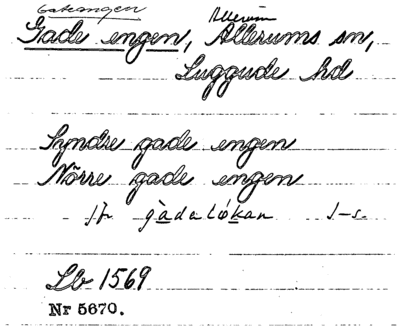 Gatuängen Allerum
Gade engen, Allerums sn,
Luggude hd
Syndre gade engen
Nörre gade engen
jfr gådaløkan 1-s.
Lb 1569
Nr 5670.